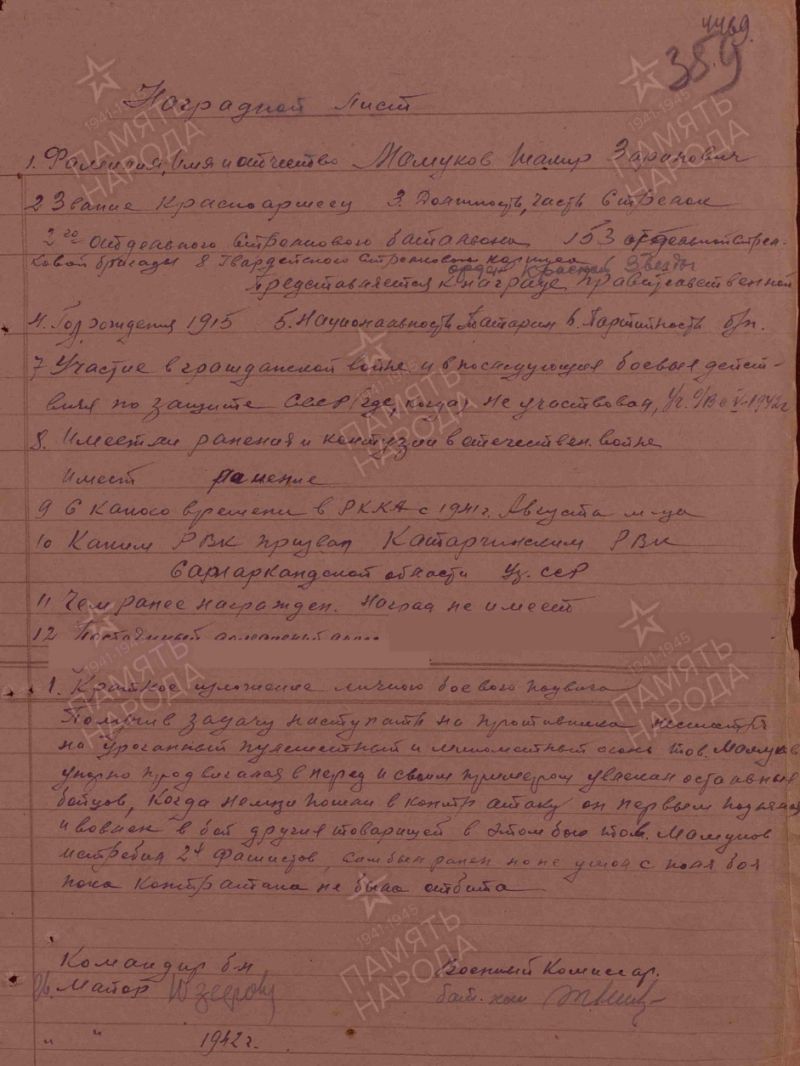 4469.
359
Наградной лист
1. Фамилия, Имя и отчество Мамуков Шамир Зарипович
2 Звание Красноармеец 3. Должность, часть Стрелок
2го отдельного Стрелкового батальона 153 отдельной стрел-
ковой бригады 8 Гвардейского Стрелкового корпуса
орден Красной Звезды
Представляется к награде правительственной
4. Год рождения 1915 5. Национальность Татарин 6. Партийность б/п.
7 Участие в гражданской войне и в последующих боевых дейст-
виях по защите СССР (где, когда) не участвовал, Уч. О/В с V-1942г
8. Имеет ли ранения и контузии в отечествен. войне
Имеет ранение
9 С какого времени в РККА с 1941 г. Августа м-ца
10 Каким РВК призван Катарчинским РВК
Самаркандской области Уз. ССР
11 Чем ранее награжден. Наград не имеет
12 Постоянный домашний адрес
1. Краткое изложение личного боевого подвига
Получив задачу наступать на противника несмотря
на ураганный пулеметный и минометный огонь тов. Мамуков
упорно продвигался вперед и своим примером увлекал остальных
бойцов, Когда немцы пошли в контр атаку он первым поднялся
и вовлек в бой других товарищей в этом бою тов. Мамуков
истребил 24 фашистов, сам был ранен но не ушел с поля боя
пока контратака не была отбита
Командир б-н Военный Комиссар.
Гв. Майор бат. ком
" " 1942 г.
ПАМЯТЬ НАРОДА
1941-1945